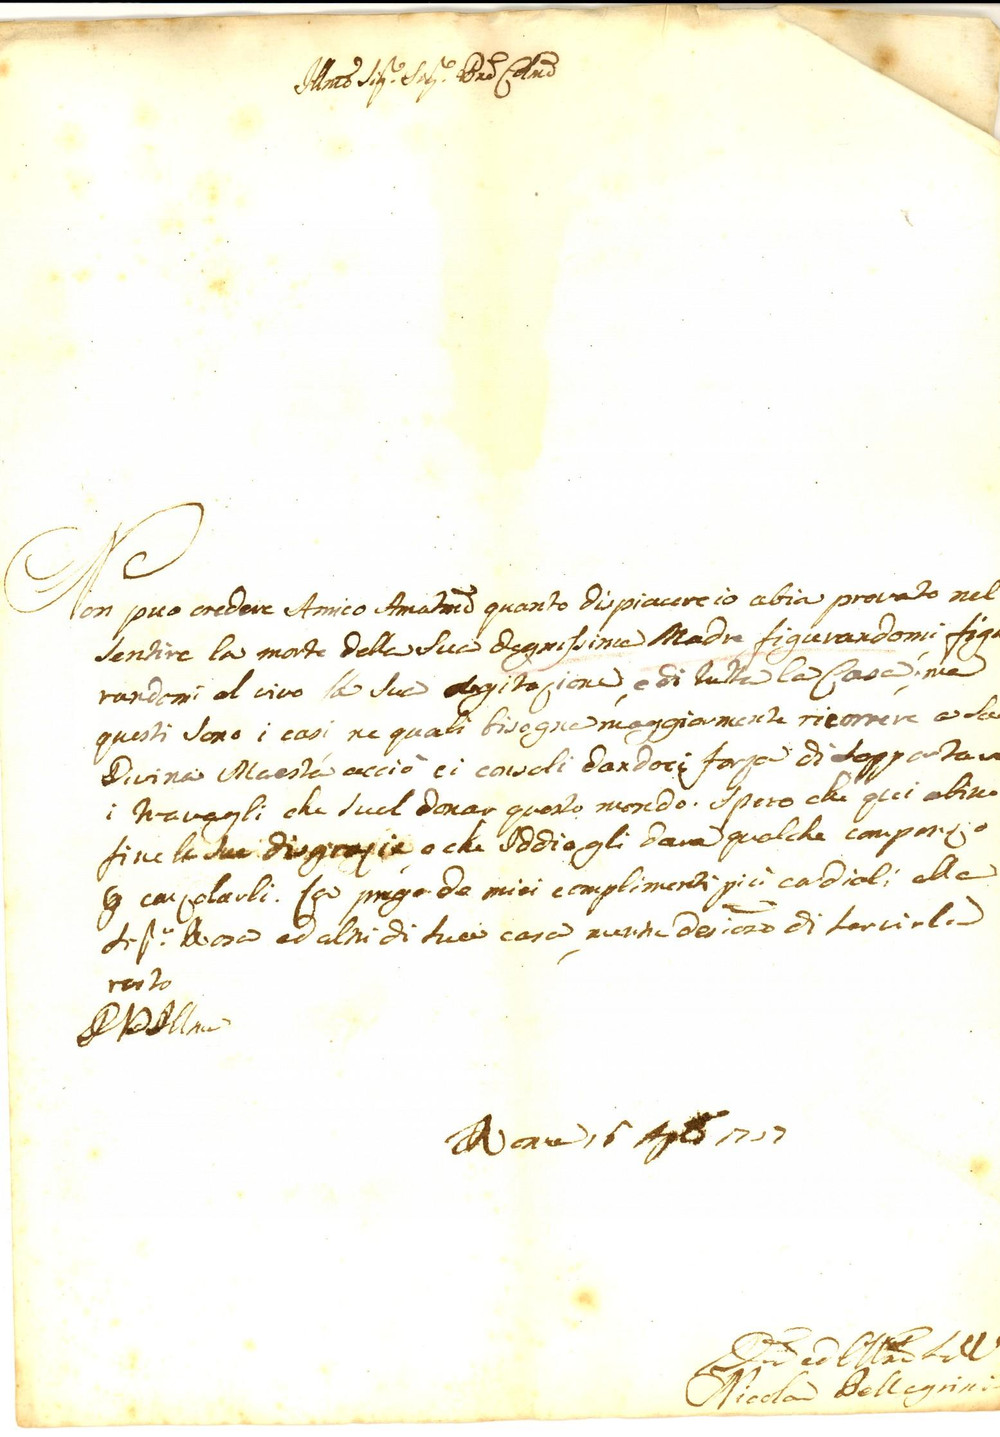 Illmo Sigr. Sigr. Pron Colmo
Non puo credere Amico Amatmo quanto dispiacere io abia provato nel
sentire la morte della sua degnissima Madre figurandomi figu
randomi al vivo la sua agitazione, e di tutta la Casa; ma
questi sono i casi ne quali bisogna maggiormente ricorrere a Sa
Divina Maestà acciò ci consoli dandoci forza di sopportare
i travagli che suol donar questo mondo. Spero che qui abino
fine le sue disgrazie e che Iddio gli darà qualche compenso
consolarli. La prego de miei complimenti più cordiali alla
Sigra. Rosa ed altri di sua casa, mentre desideroso di servirla
resto
D V S Illma
Roma 16 1757
ed
Nicola Pellegrini